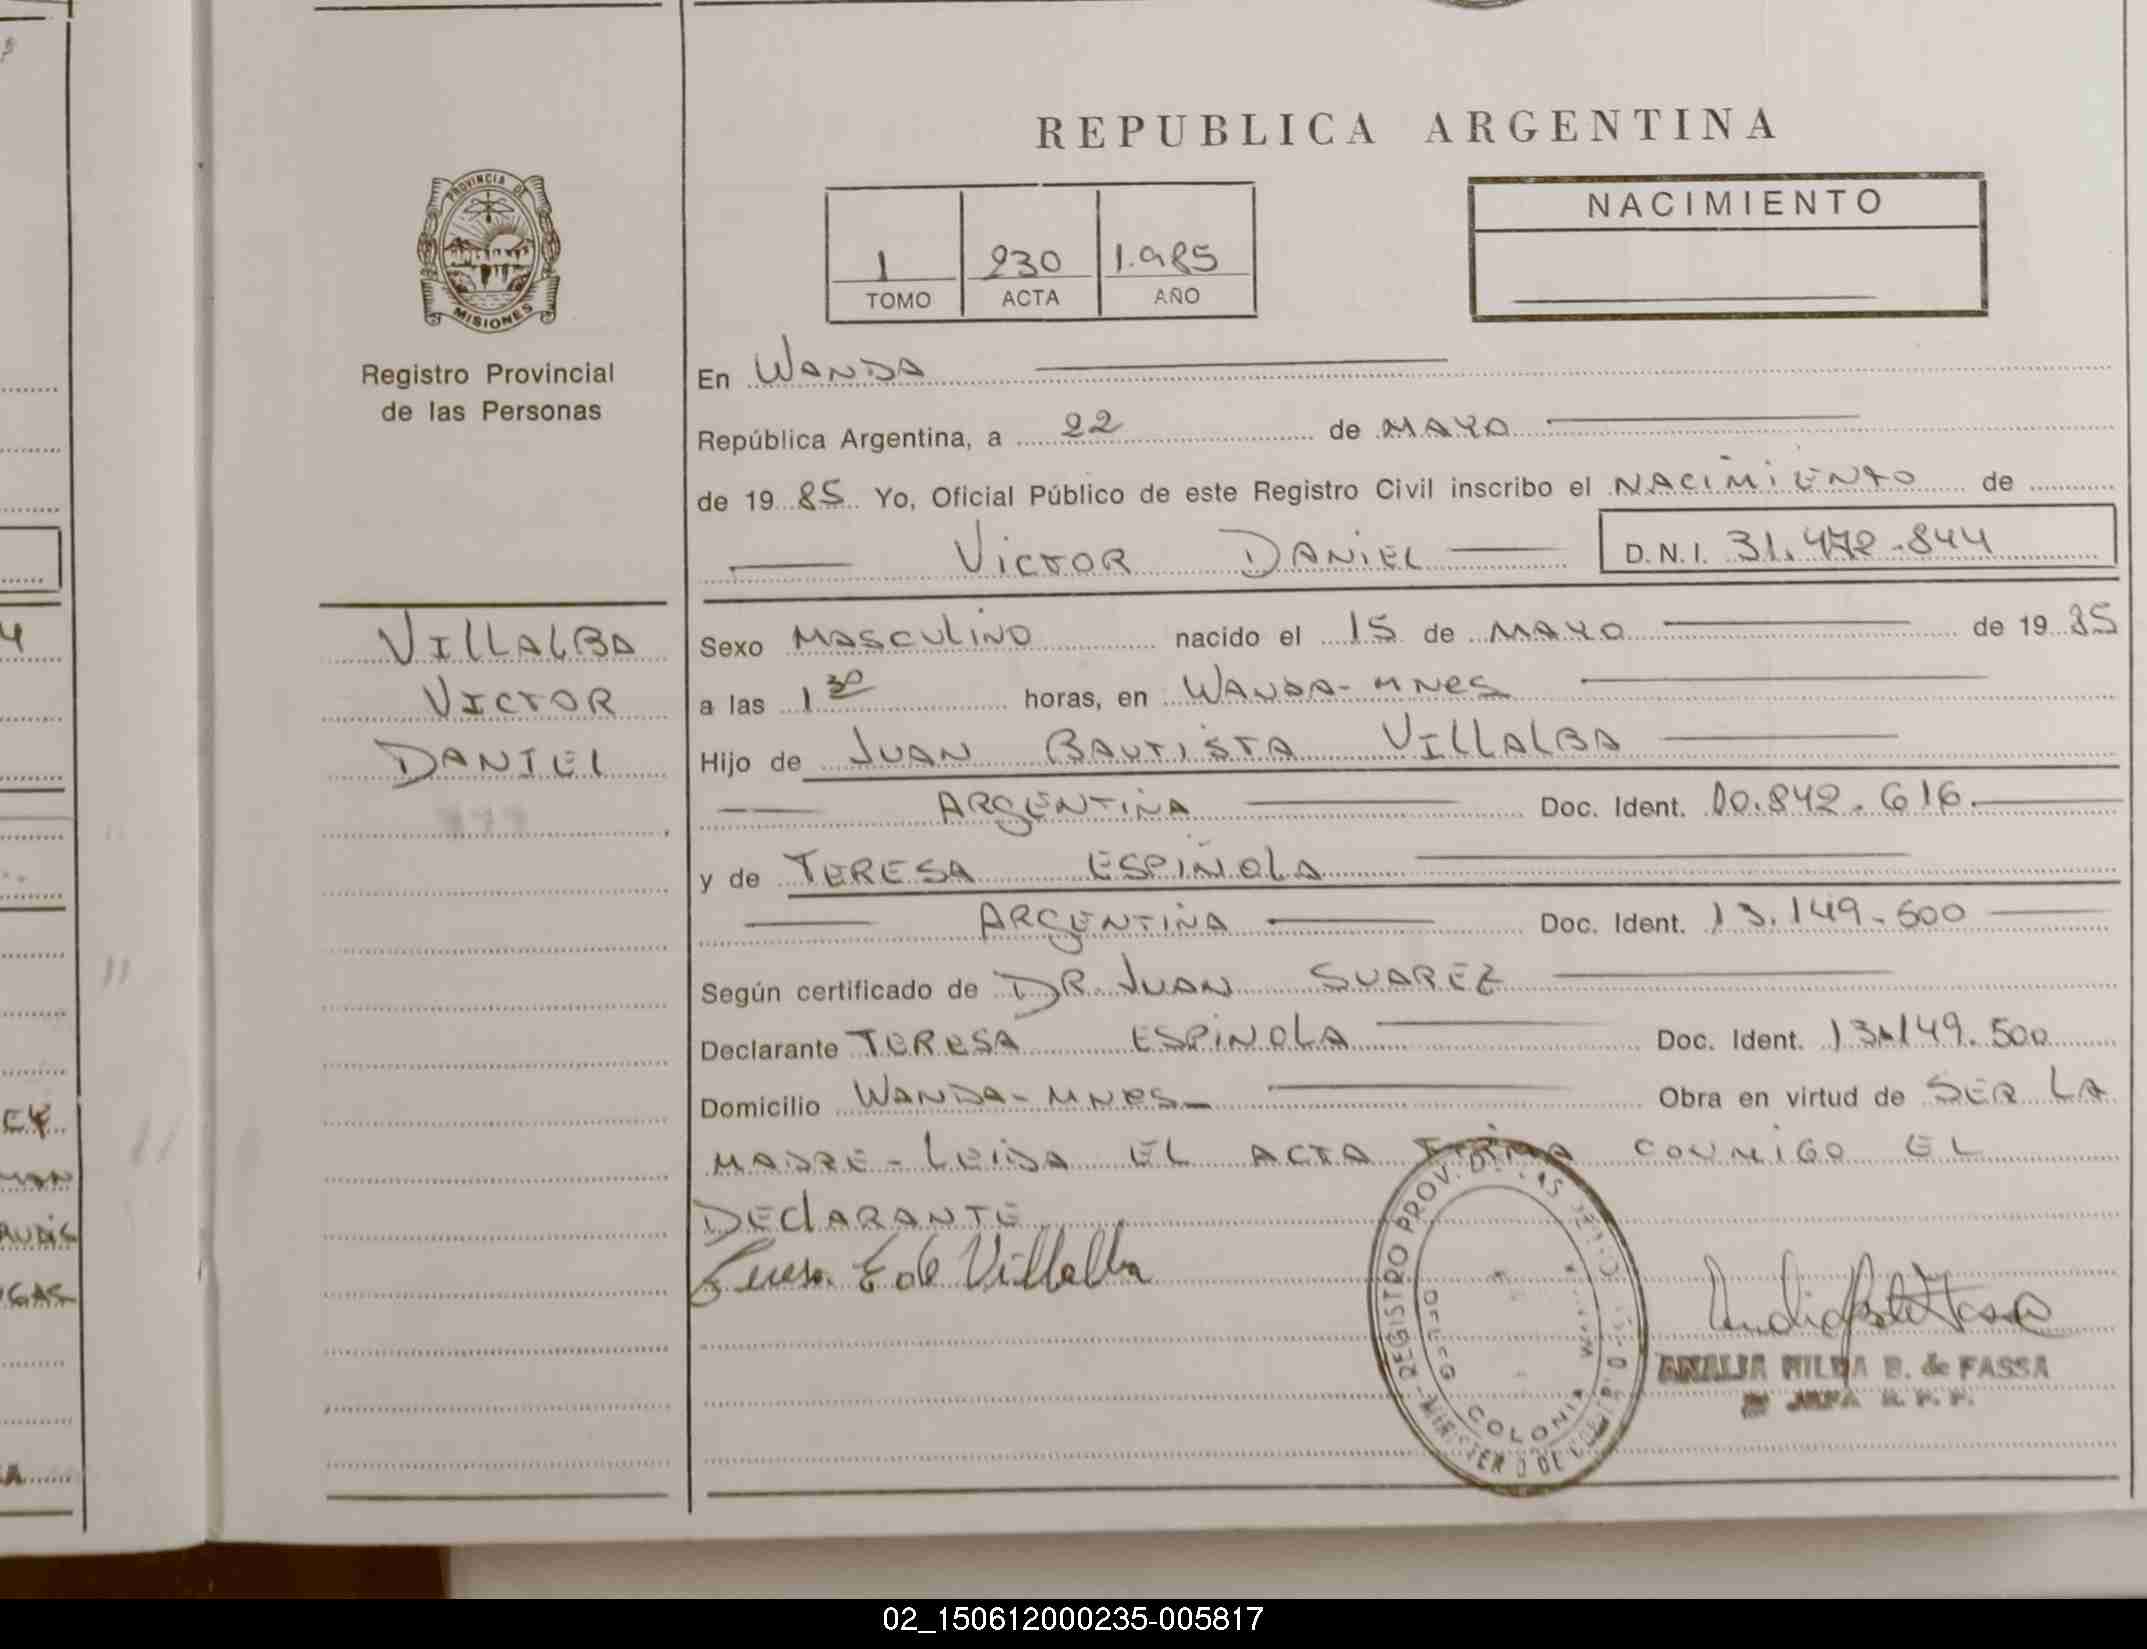 REPUBLICA ARGENTINA
PROVINCIA DE
MISIONES
Registro Provincial
de las Personas
1 230 1.985
TOMO ACTA AÑO
NACIMIENTO
En WANDA
República Argentina, a 22 de MAYO
de 19 85 Yo, Oficial Público de este Registro Civil inscribo el NACIMIENTO de
VICTOR DANIEL D.N.I. 31.472.844
VILLALBA
VICTOR
DANIEL
Sexo MASCULINO nacido el 15 de MAYO de 19 85
a las 1 30 horas, en WANDA-MNES
Hijo de JUAN BAUTISTA VILLALBA
ARGENTINA Doc. Ident. 10.842.616.
y de TERESA ESPINOLA
ARGENTINA Doc. Ident. 13.149.500
Según certificado de DR. JUAN SUAREZ
Declarante TERESA ESPINOLA Doc. Ident. 13.149.500
Domicilio WANDA-MNES- Obra en virtud de SER LA
MADRE- LEIDA EL ACTA FIRMA CONMIGO EL
DECLARANTE
Teresa E de Villalba
REGISTRO PROV. DE LAS
DELEG
COLONIA
MINISTERIO DE
ANALIA HILDA B. de FASSA
JEFA R. P. P.
02_150612000235-005817